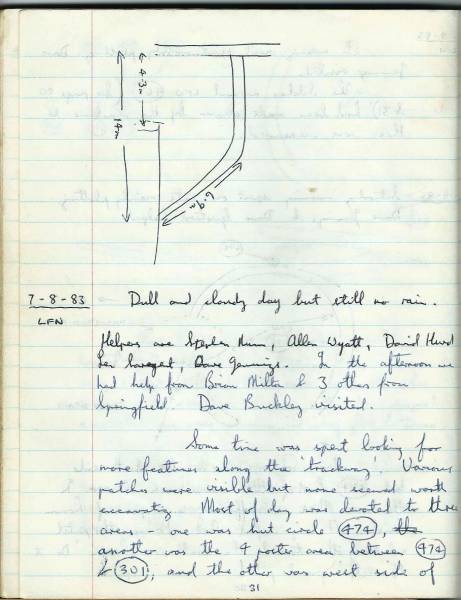 4.3m
14m
6.9m
7-8-83
Dull and cloudy day but still no rain.
LFN
Helpers are Stephen Nunn, Allen Wyatt, David Hurd
Len Dave Jennings. In the afternoon we
had help from Brian Milton & 3 others from
Springfield. Dave Buckley visited.
Some time was spent looking for
more features along the 'trackway'. Various
patches were visible but none seemed worth
excavating. Most of day was devoted to three
areas - one was hut circle 474, the
another was the 4 poster area between 474
& 301, and the other was west side of
31